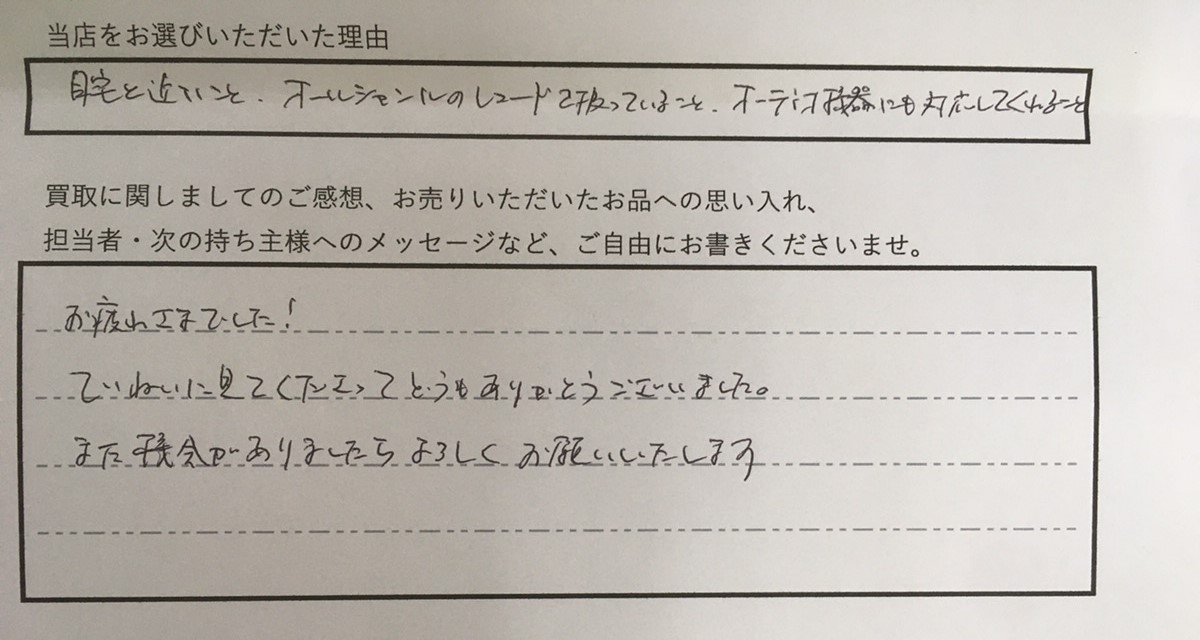 当店をお選びいただいた理由
自宅と近いこと、オールジャンルのレコードを扱っていること、オーディオ機器にも対応してくれること
買取に関しましてのご感想、お売りいただいたお品への思い入れ、
担当者・次の持ち主様へのメッセージなど、ご自由にお書きくださいませ。
お疲れさまでした!
ていねいに見てくださってどうもありがとうございました。
また機会がありましたらよろしくお願いいたします